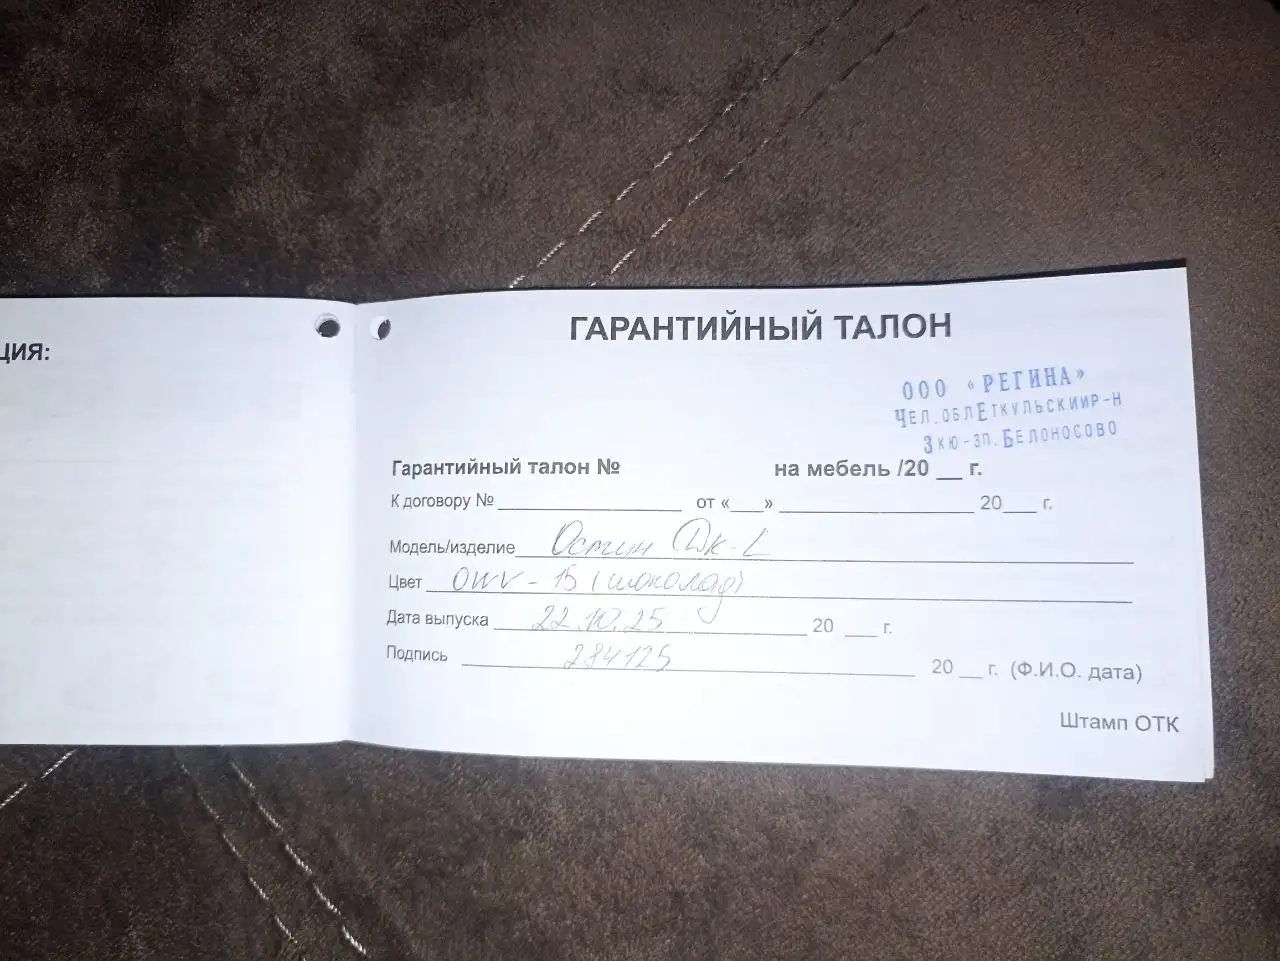 ЦИЯ:
ГАРАНТИЙНЫЙ ТАЛОН
ООО «РЕГИНА»
ЧЕЛ.ОБЛЕТКУЛЬСКИИР-Н
3КЮ-ЗП.БЕЛОНОСОВО
Гарантийный талон № на мебель /20 __ г.
К договору № ____ от «___» ____ 20___ г.
Модель/изделие Остин ДК-L
Цвет OWV-15 (шоколад)
Дата выпуска 22.10.25 20 ___ г.
Подпись 284125 20 __ г. (Ф.И.О. дата)
Штамп ОТК